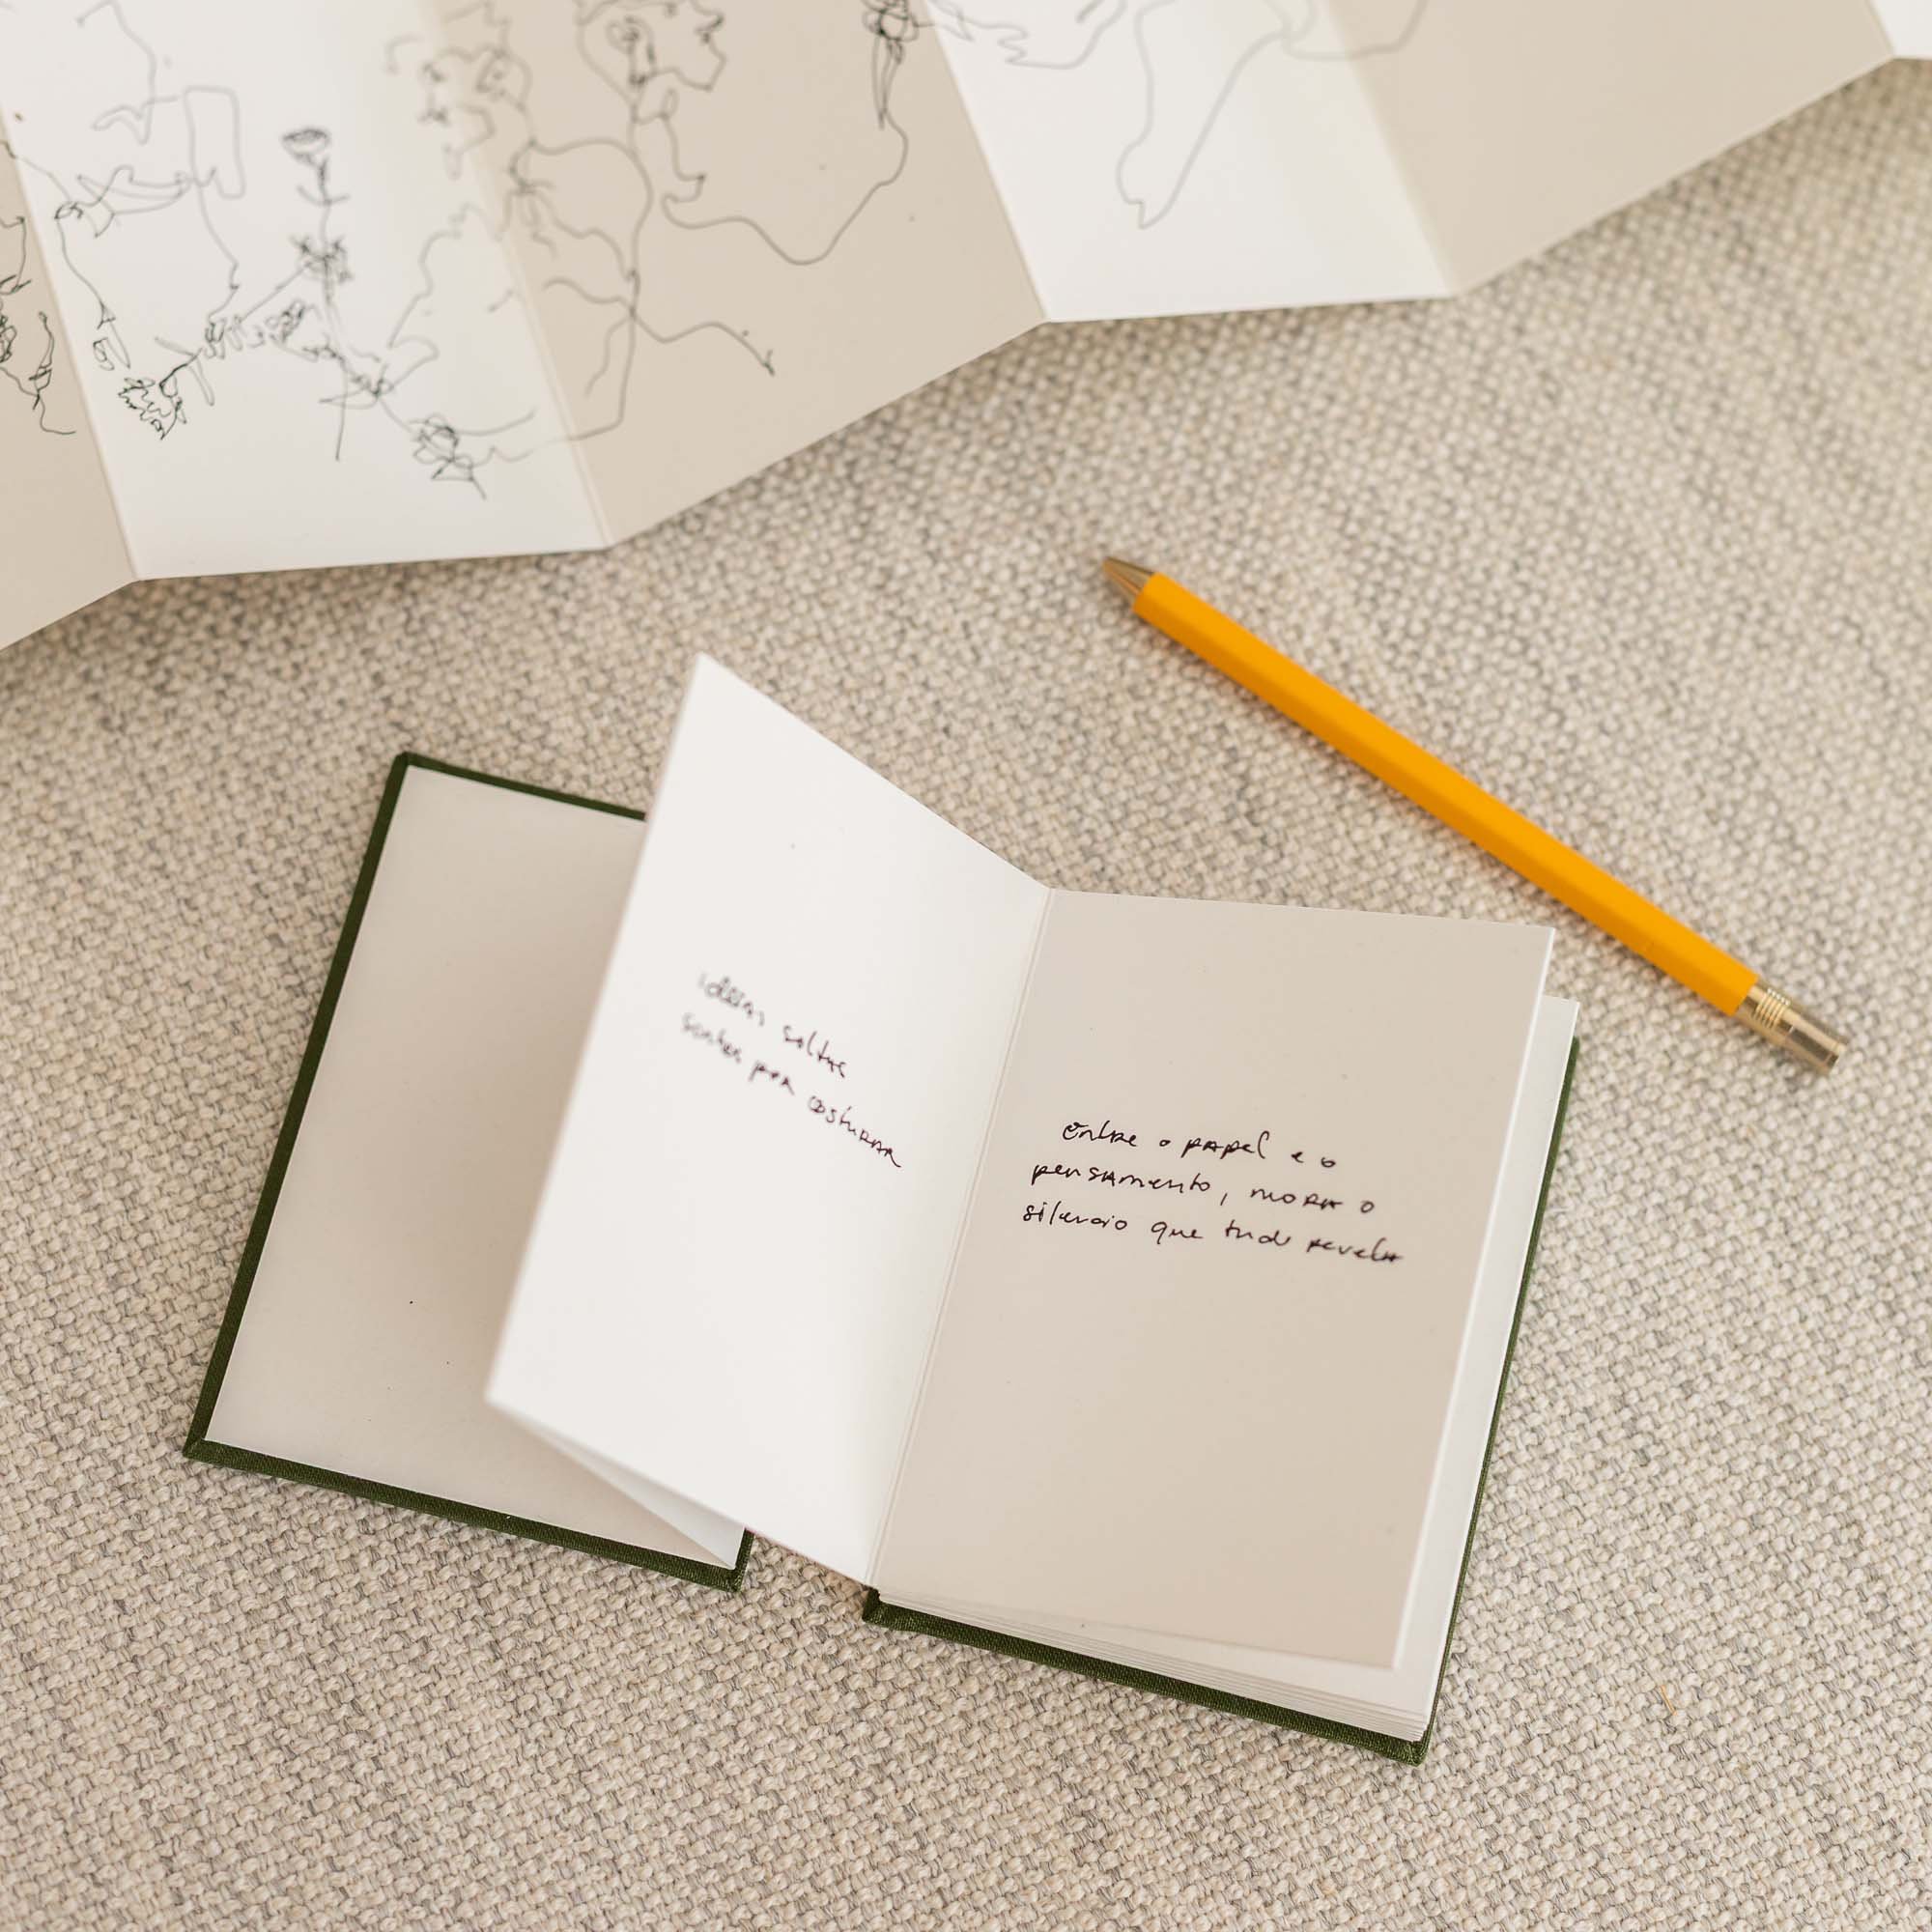 ideias soltas
sonhos por costurar
Entre o papel e o
pensamento, mora o
silencio que tudo revela